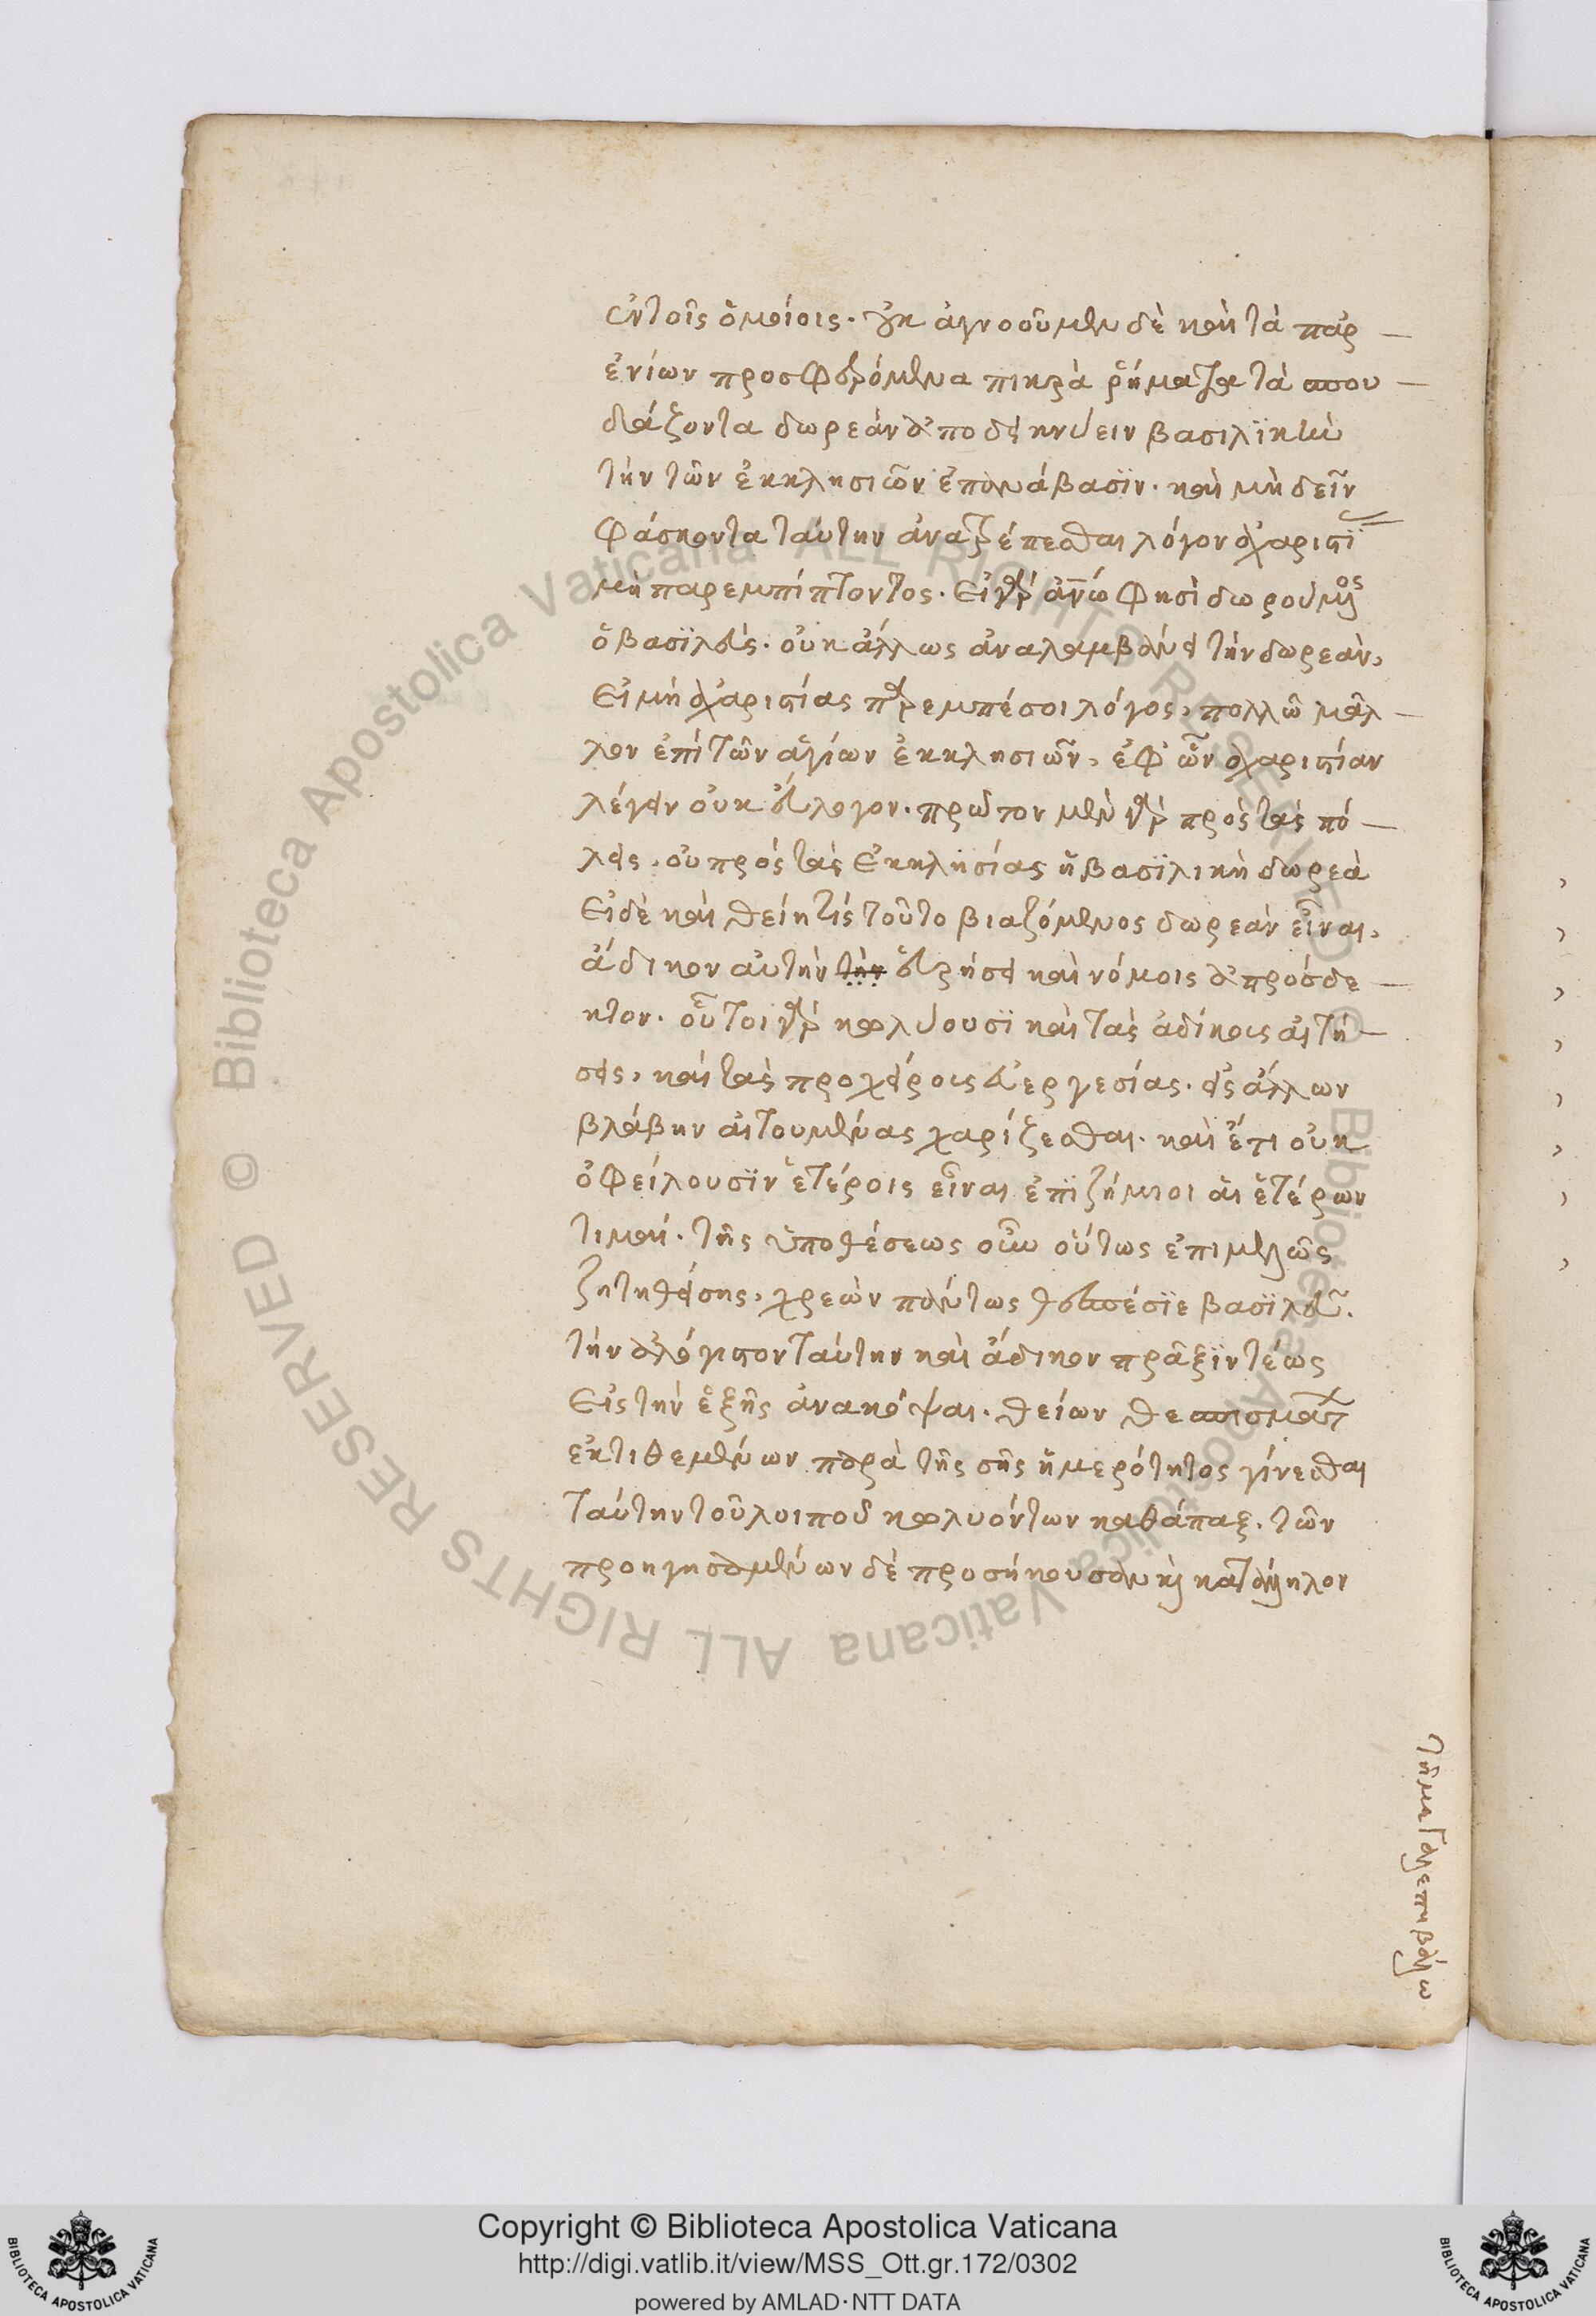 ἐν τοῖς ὁμοίοις. οὐκ ἀγνοοῦμεν δὲ καὶ τὰ παρ
ἐνίων προσφερόμενα πικρὰ ῥήματα τὰ σπου
διάζοντα δωρεὰν ἀποδεικνύειν βασιλικὴν
τὴν τῶν ἐκκλησιῶν ἐπανάβασιν. καὶ μὴ δεῖν
φάσκοντα ταύτην ἀνατρέπεσθαι λόγον ἀχαριστί
μὴ παρεμπίπτοντος. Εἰ γὰρ ἀνω φησὶ δωρούμενος
ὁ βασιλεύς. οὐκ ἄλλως ἀναλαμβάνει τὴν δωρεάν,
Εἰ μὴ ἀχαριστίας παρεμπέσοι λόγος, πολλῶ μᾶλ
λον ἐπὶ τῶν ἁγίων ἐκκλησιῶν, ἐφ' ὧν ἀχαριστίαν
λέγειν οὐκ εὔλογον. πρῶτον μὲν γὰρ πρὸς τὰς πό
λεις. οὐ πρὸς τὰς Ἐκκλησίας ἡ βασιλικὴ δωρεὰ
Εἰ δὲ καὶ θείη τὶς τοῦτο βιαζόμενος δωρεὰν εἶναι,
ἄδικον αὐτὴν τὴν εὑρήσει καὶ νόμοις ἀπρόσδε
κτον. οὗτοι γὰρ κωλύουσι καὶ τὰς ἀδίκοις αἰτή
σεις, καὶ τὰς προχείροις εὐεργεσίας. εἰς ἄλλων
βλάβην αἰτουμένας χαρίζεσθαι. καὶ ἔτι οὐκ
ὀφείλουσιν ἑτέροις εἶναι ἐπιζήμιοι αἱ ἑτέρων
τιμαί. τῆς ὑποθέσεως οὖν οὕτως ἐπιμελῶς
ζητηθείσης, χρεὼν πάντως θεσπέσιε βασιλεῦ.
τὴν ἀλόγιστον ταύτην καὶ ἄδικον πρᾶξιν τέως
Εἰς τὴν ἑξῆς ἀνακόψαι. θείων θεσπισμάτ
ἐκτιθεμένων παρὰ τῆς σῆς ἡμερότητος γίνεσθαι
ταύτην τοῦ λοιποῦ κωλυόντων καθάπαξ. τῶν
προηγησαμένων δὲ προσήκουσαν καὶ κατάλληλον
Copyright © Biblioteca Apostolica Vaticana
http://digi.vatlib.it/view/MSS_Ott.gr.172/0302
powered by AMLAD·NTT DATA